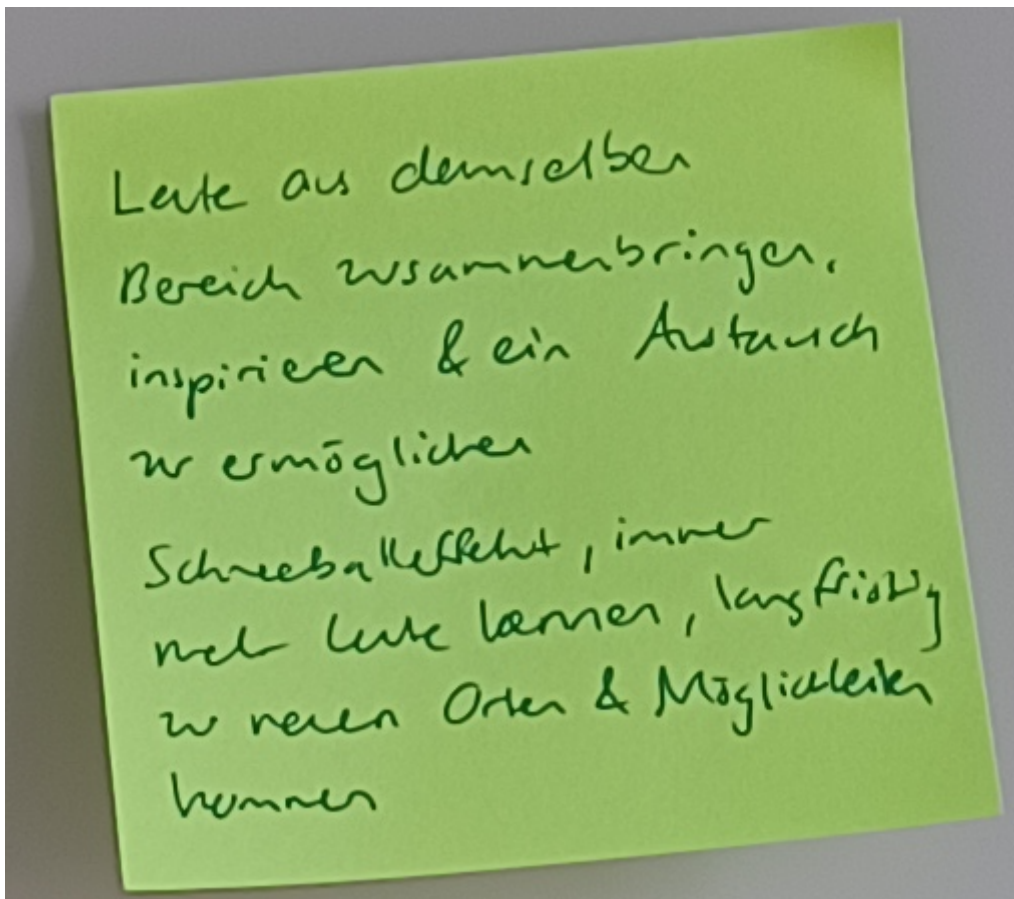 Leute aus demselben
Bereich zusammenbringen,
inspirieren & ein Austausch
zu ermöglichen
Schneeballeffekt, immer
mehr Leute kennen, langfristig
zu neuen Orten & Möglichkeiten
kommen